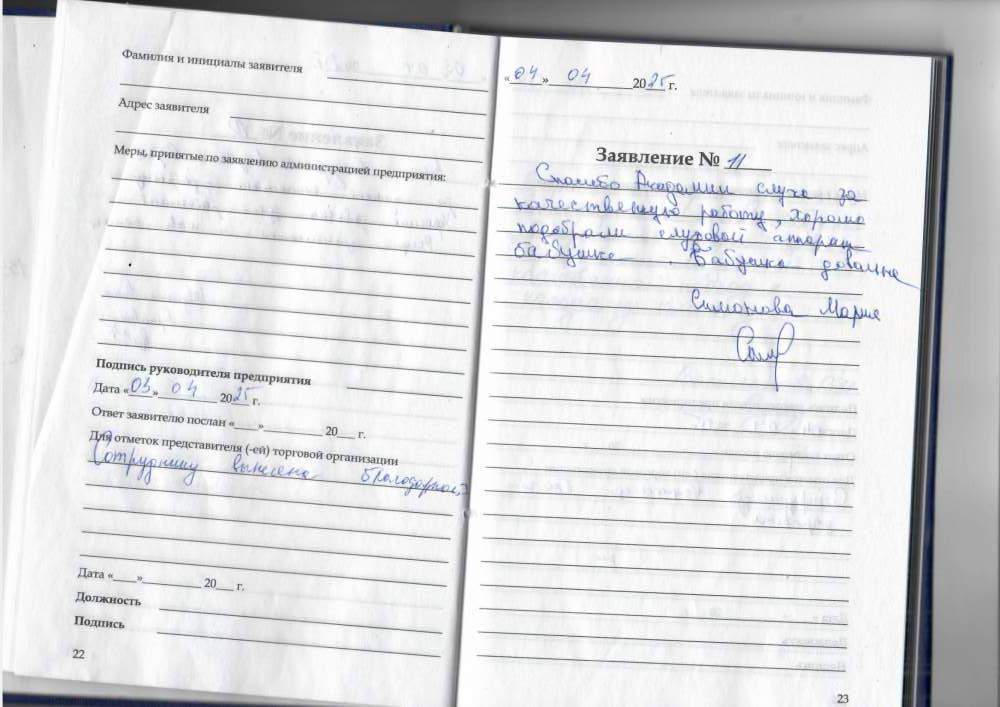 Фамилия и инициалы заявителя
Адрес заявителя
Меры, принятые по заявлению администрацией предприятия:
Подпись руководителя предприятия
Дата «03» 04 2025 г.
Ответ заявителю послан «____»__________ 20___ г.
Для отметок представителя (-ей) торговой организации
Сотруднику вынесена благодарность
Дата «____»__________ 20___ г.
Должность
Подпись
22
«04» 04 2025 г.
Заявление № 11
Спасибо Академии слуха за
качественную работу, хорошо
подобрали слуховой аппарат
бабушке. Бабушка довольна
Симонова Мария
23